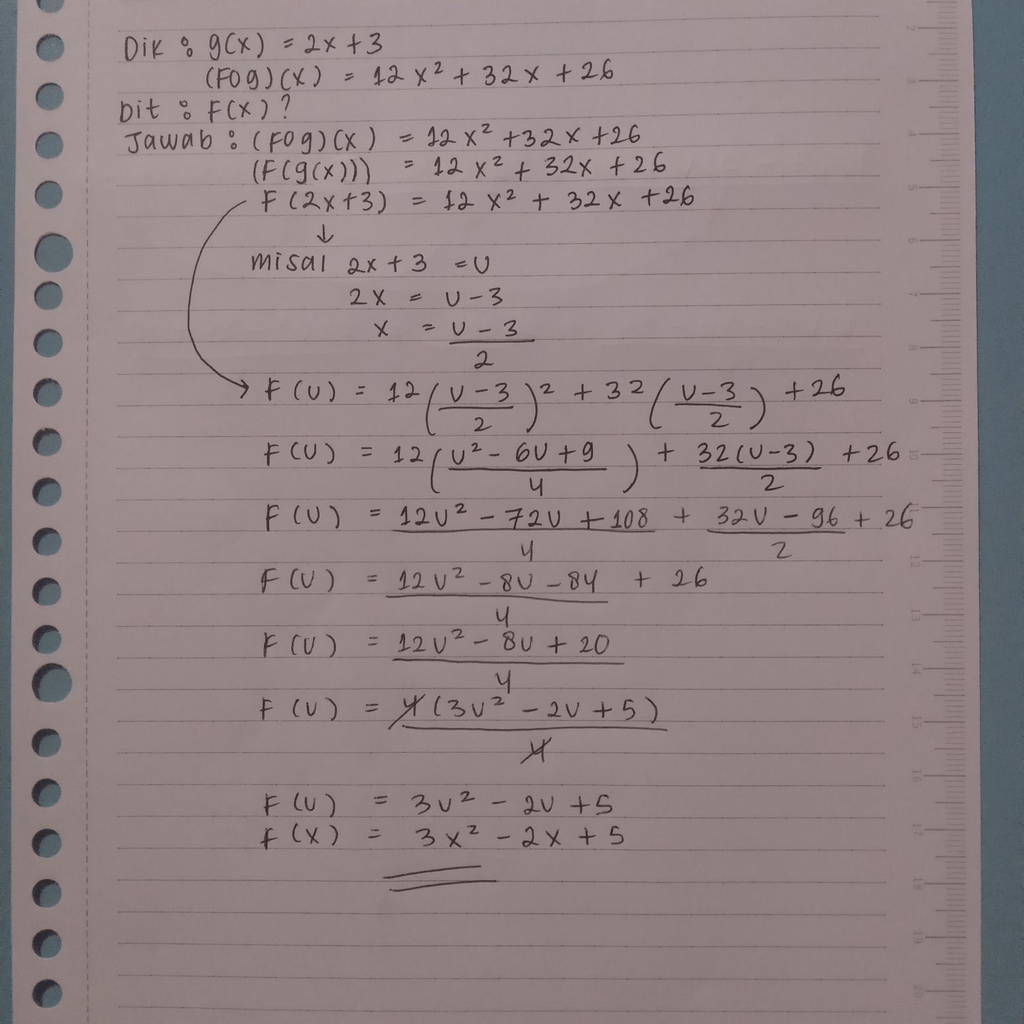 Dik : g(x) = 2x + 3
(Fog)(x) = 12x² + 32x + 26
Dit : F(x)?
Jawab : (Fog)(x) = 12x² + 32x + 26
(F(g(x))) = 12x² + 32x + 26
F(2x+3) = 12x² + 32x + 26
↓
misal 2x + 3 = U
2x = U - 3
x = (U - 3)/2
F(U) = 12((U-3)/2)² + 32((U-3)/2) + 26
F(U) = 12((U² - 6U + 9)/4) + 32(U-3)/2 + 26
F(U) = (12U² - 72U + 108)/4 + (32U - 96)/2 + 26
F(U) = (12U² - 8U - 84)/4 + 26
F(U) = (12U² - 8U + 20)/4
F(U) = 4(3U² - 2U + 5)/4
F(U) = 3U² - 2U + 5
F(x) = 3x² - 2x + 5